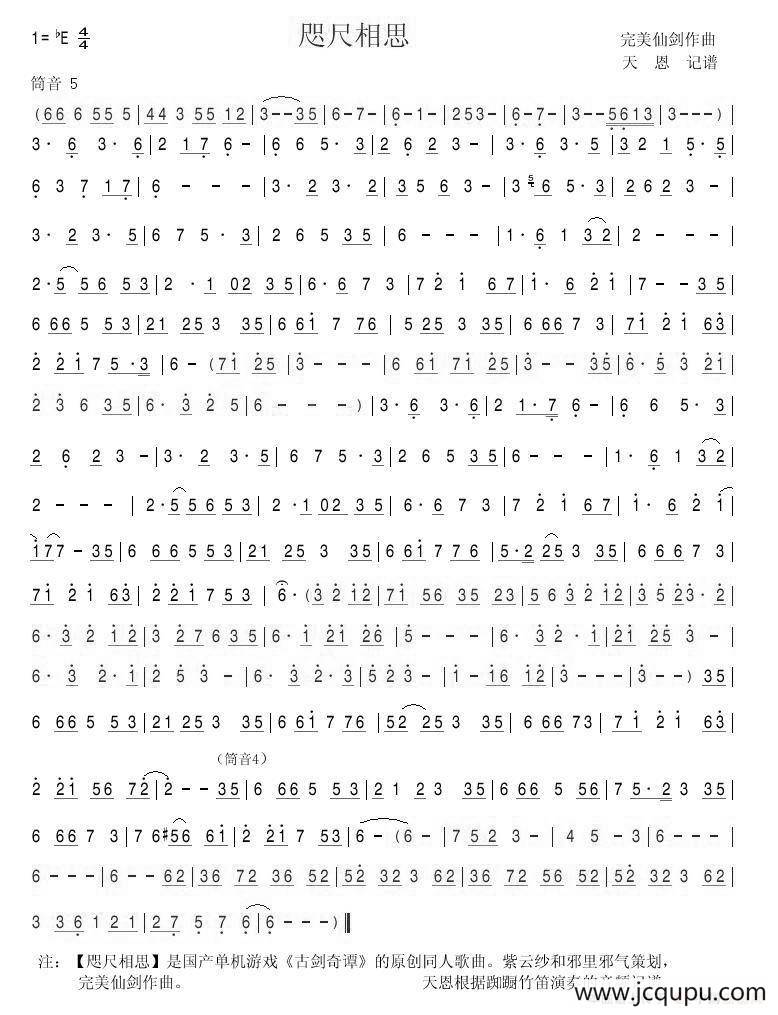 咫尺相思
1= ♭E 4/4
完美仙剑作曲
天 恩 记谱
筒音 5
(66 6 55 5 | 44 3 55 12 | 3--35 | 6-7- | 6-1- | 253- | 6-7- | 3--5613 | 3---) |
3· 6 3· 6 | 2 1 7 6 - | 6 6 5· 3 | 2 6 2 3 - | 3· 6 3· 5 | 3 2 1 5·5 |
6 3 7 1 7 | 6 - - - | 3· 2 3· 2 | 3 5 6 3 - | 3 5 6 5· 3 | 2 6 2 3 - |
3· 2 3· 5 | 6 7 5· 3 | 2 6 5 3 5 | 6 - - - | 1· 6 1 3 2 | 2 - - - |
2· 5 5 6 5 3 | 2 · 1 02 3 5 | 6· 6 7 3 | 7 2 1 6 7 | 1· 6 2 1 | 7 - - 3 5 |
6 66 5 5 3 | 21 25 3 35 | 6 661 7 76 | 5 25 3 35 | 6 66 7 3 | 71 2 1 63 |
2 2 1 7 5 ·3 | 6 - (71 25 | 3 - - - | 6 61 71 25 | 3 - - 35 | 6· 5 3 21 |
2 3 6 3 5 | 6· 3 2 5 | 6 - - - ) | 3· 6 3· 6 | 2 1· 7 6 - | 6 6 5· 3 |
2 6 2 3 - | 3· 2 3· 5 | 6 7 5· 3 | 2 6 5 3 5 | 6 - - - | 1· 6 1 3 2 |
2 - - - | 2· 5 5 6 5 3 | 2 ·1 02 3 5 | 6· 6 7 3 | 7 2 1 6 7 | 1· 6 2 1 |
177 - 35 | 6 6 6 5 5 3 | 21 25 3 35 | 6 661 7 7 6 | 5·2 25 3 35 | 6 6 6 7 3 |
71 2 1 63 | 2 2 1 7 5 3 | 6·(3 2 12 | 71 56 35 23 | 5 6 3 2 12 | 3 5 23· 2 |
6· 3 2 1 2 | 3 2 7 6 3 5 | 6· 1 21 26 | 5 - - - | 6· 3 2· 1 | 21 25 3 - |
6· 3 2· 1 | 2 5 3 - | 6· 3 2· 3 | 5 2 3 - | 1 - 16 12 | 3 - - - | 3 - - ) 35 |
6 66 5 53 | 21 25 3 35 | 6 61 7 76 | 52 25 3 35 | 6 66 73 | 7 1 2 1 63 |
（筒音4）
2 21 56 72 | 2 - - 35 | 6 66 5 53 | 2 1 2 3 35 | 6 66 5 56 | 7 5· 2 3 35 |
6 66 7 3 | 7 6#56 61 | 2 21 7 53 | 6 - (6 - | 7 5 2 3 - | 4 5 - 3 | 6 - - - |
6 - - - | 6 - - 62 | 36 72 36 52 | 52 32 36 62 | 36 72 56 52 | 36 72 56 52 |
3 3 6 1 2 1 | 2 7 5 7 6 | 6 - - - )‖
注：【咫尺相思】是国产单机游戏《古剑奇谭》的原创同人歌曲。紫云纱和邪里邪气策划，
完美仙剑作曲。 天恩根据踟蹰竹笛演奏的音频记谱
www.jcqupu.com